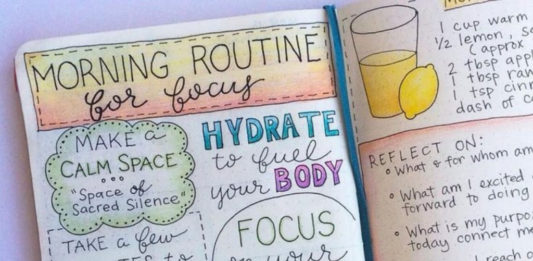 MORNING ROUTINE
for focus
MAKE a
CALM SPACE
"Space of
Sacred Silence"
TAKE a few
HYDRATE
to fuel
your BODY
FOCUS
on your
1 cup warm
1/2 lemon, s
(approx
2 tbsp app
1 tbsp ra
1 tsp cinn
dash of c
REFLECT ON:
• What & for whom am
• What am I excited
forward to doing
• What is my purpo
today connect me